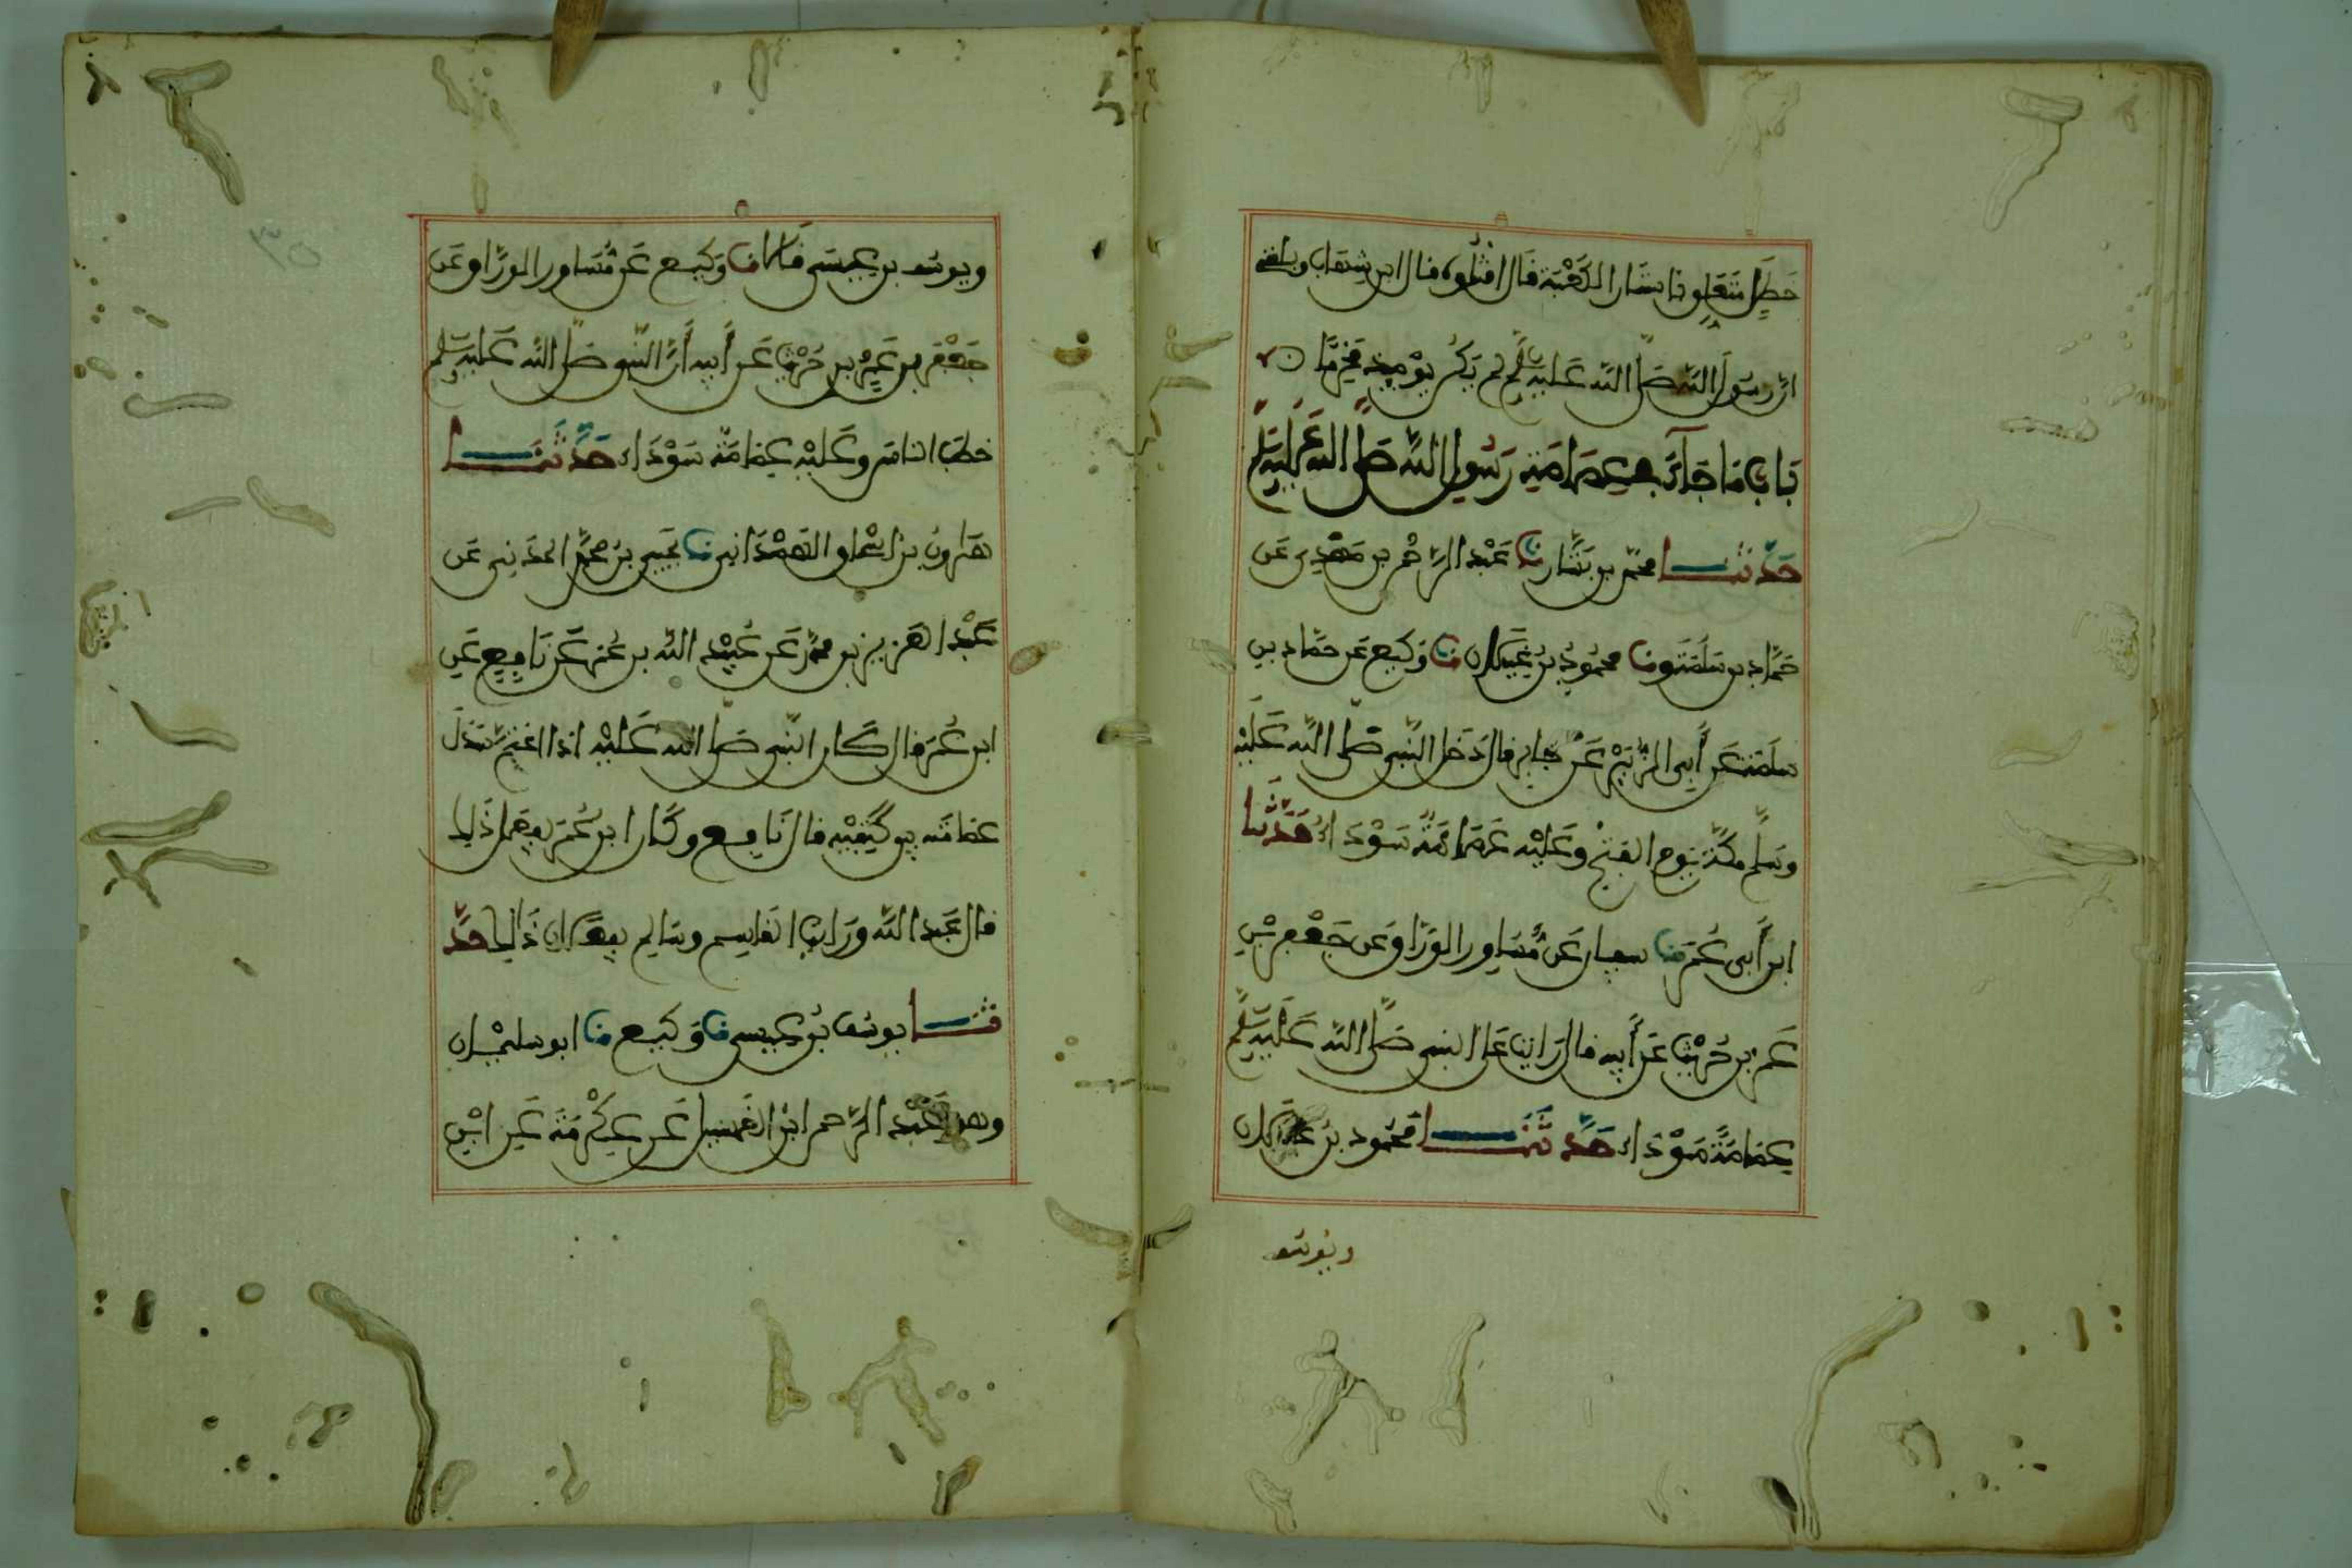 خطل متعلق باستار الكعبة قال اقتلوه قال ابن شهاب وبلغني
ان رسول الله صلى الله عليه وسلم لم يكن يومئذ محرما
باب ما جاء في عمامة رسول الله صلى الله عليه وسلم
حدثنا محمد بن بشار نا عبد الرحمن بن مهدي عن
حماد بن سلمة ونا محمود بن غيلان نا وكيع عن حماد بن
سلمة عن أبي الزبير عن جابر قال دخل النبي صلى الله عليه
وسلم مكة يوم الفتح وعليه عمامة سوداء حدثنا
ابن أبي عمر نا سفيان عن مساور الوراق عن جعفر بن
عمرو بن حريث عن أبيه قال رايت على النبي صلى الله عليه وسلم
عمامة سوداء حدثنا محمود بن غيلان
ويوسف
ويوسف بن عيسى قالا نا وكيع عن مساور الوراق عن
جعفر بن عمرو بن حريث عن أبيه أن النبي صلى الله عليه وسلم
خطب الناس وعليه عمامة سوداء حدثنا
هارون بن اسحاق الهمداني نا يحيى بن محمد المدني عن
عبد العزيز بن محمد عن عبيد الله بن عمر عن نافع عن
ابن عمر قال كان النبي صلى الله عليه اذا اعتم سدل
عمامته بين كتفيه قال نافع وكان ابن عمر يفعل ذلك
قال عبد الله ورايت القاسم وسالم يفعلان ذلك حد
ثنا يوسف بن عيسى نا وكيع نا ابو سليمان
وهو عبد الرحمن ابن الغسيل عن عكرمة عن ابن
٣٥